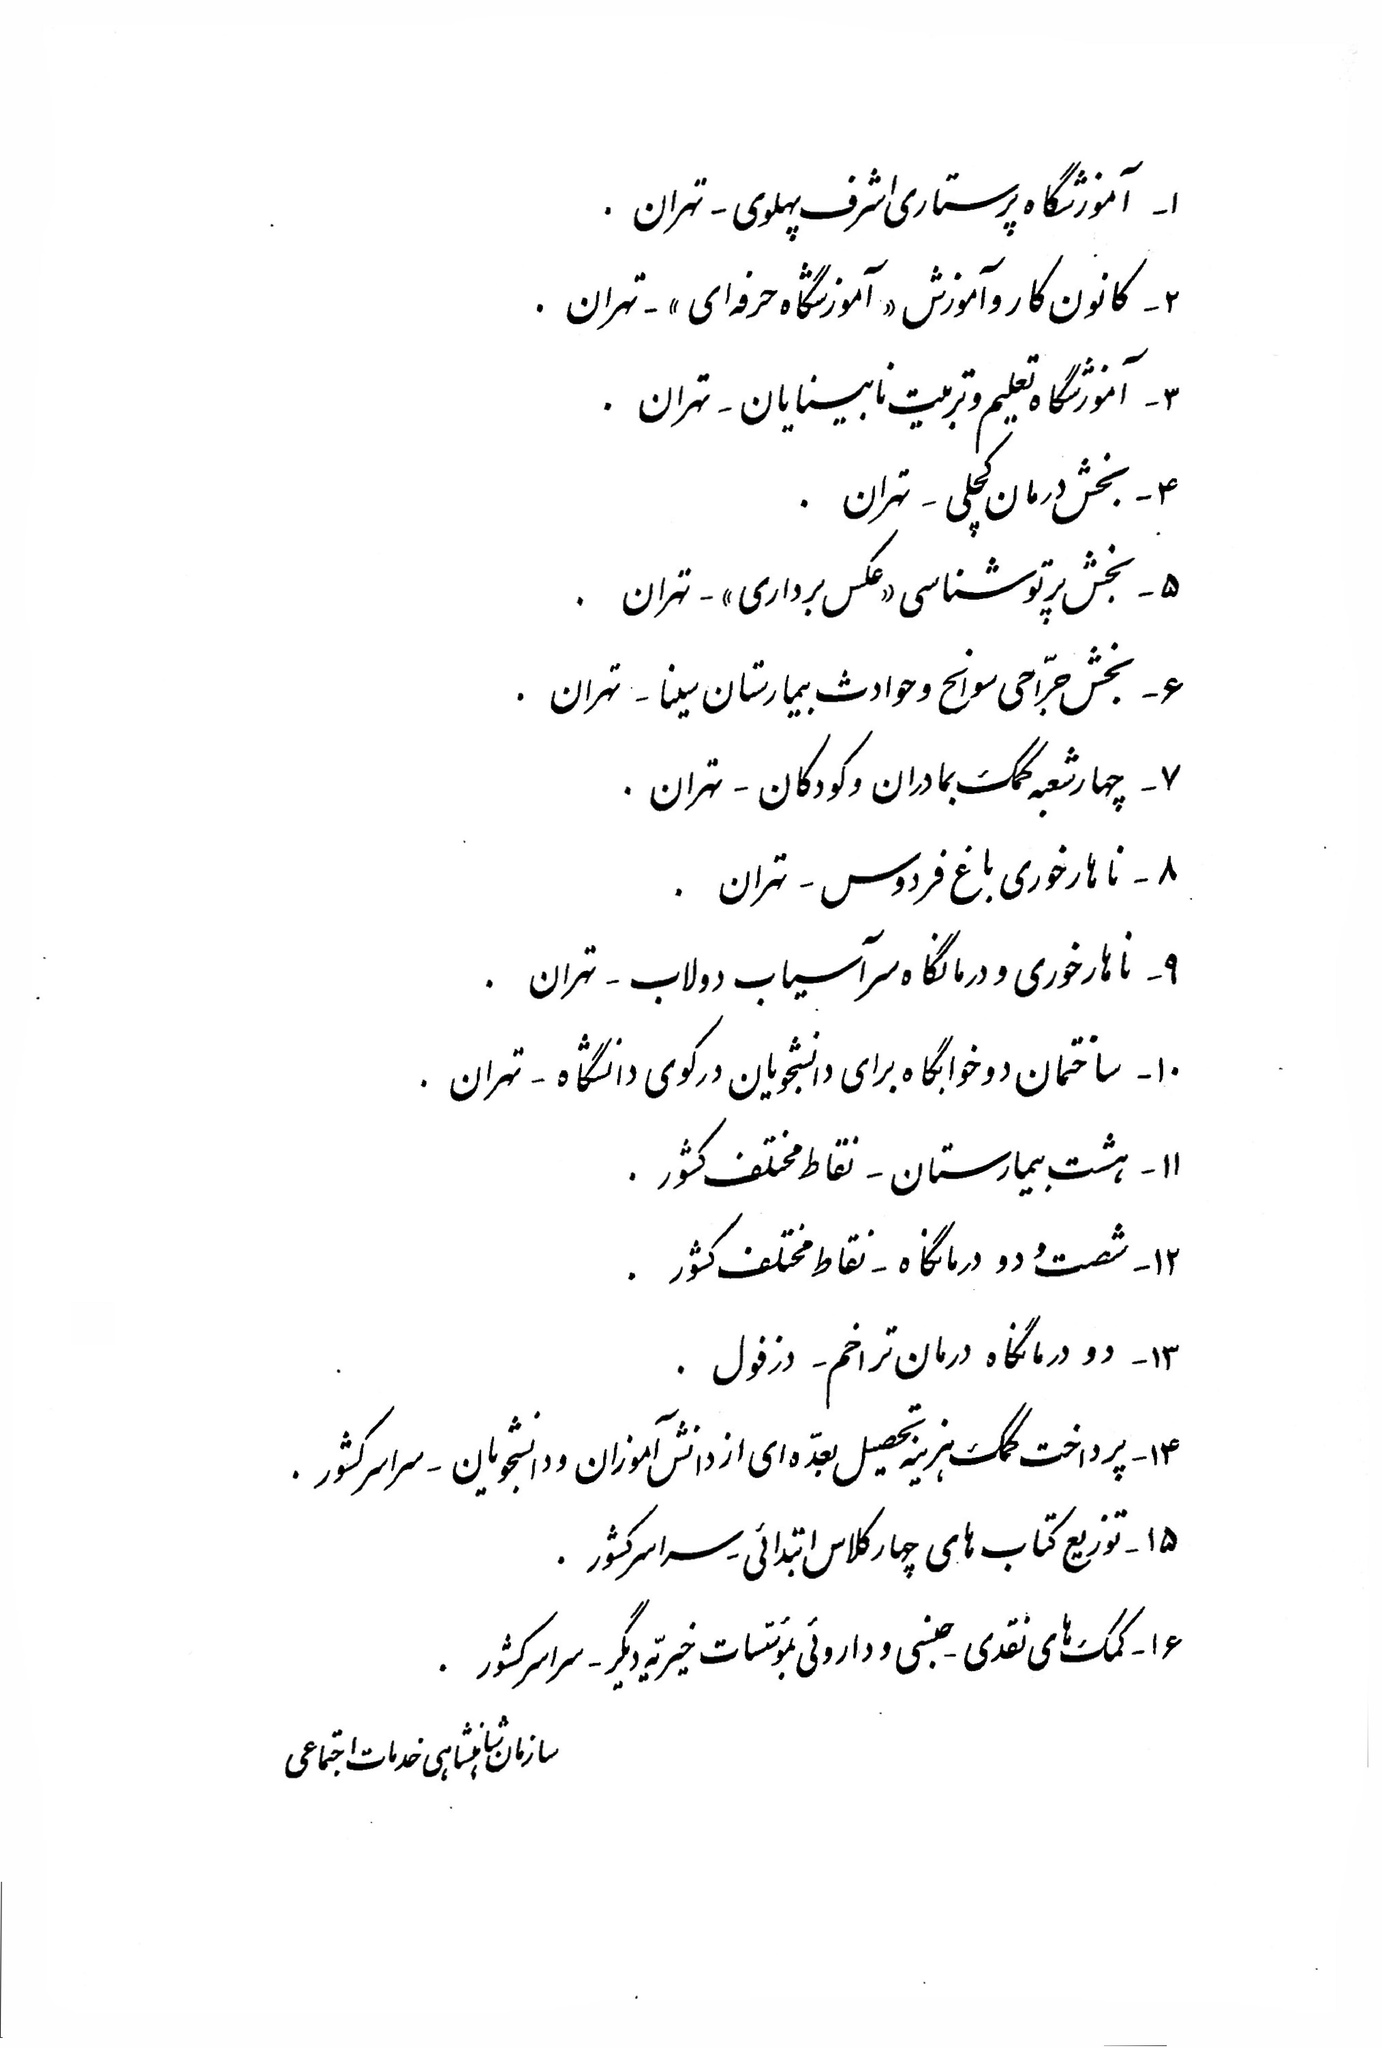 ۱- آموزشگاه پرستاری اشرف پهلوی - تهران .
۲- کانون کار و آموزش «آموزشگاه حرفه‌ای» - تهران .
۳- آموزشگاه تعلیم و تربیت نابینایان - تهران .
۴- بخش درمان کچلی - تهران .
۵- بخش پرتوشناسی «عکس برداری» - تهران .
۶- بخش جرّاحی سوانح و حوادث بیمارستان سینا - تهران .
۷- چهار شعبه کمک بمادران و کودکان - تهران .
۸- ناهارخوری باغ فردوس - تهران .
۹- ناهارخوری و درمانگاه سرآسیاب دولاب - تهران .
۱۰- ساختمان دو خوابگاه برای دانشجویان در کوی دانشگاه - تهران .
۱۱- هشت بیمارستان - نقاط مختلف کشور .
۱۲- شصت و دو درمانگاه - نقاط مختلف کشور .
۱۳- دو درمانگاه درمان تراخم - دزفول .
۱۴- پرداخت کمک هزینه تحصیل بعدّه‌ای از دانش آموزان و دانشجویان - سراسر کشور .
۱۵- توزیع کتاب های چهار کلاس ابتدائی - سراسر کشور .
۱۶- کمک‌های نقدی - جنسی و داروئی بمؤسّسات خیریّه دیگر - سراسر کشور .
سازمان شاهنشاهی خدمات اجتماعی